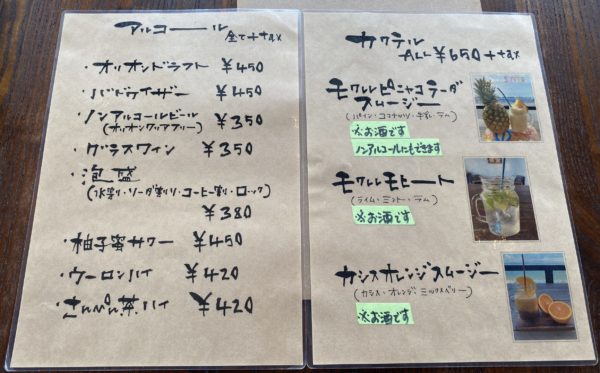 アルコール 全て+tax
・オリオンドラフト ¥450
・バドワイザー ¥450
・ノンアルコールビール ¥350
(オリオンクリアフリー)
・グラスワイン ¥350
・泡盛
(水割り・ソーダ割り・コーヒー割・ロック)
¥380
・柚子蜜サワー ¥450
・ウーロンハイ ¥420
・さんぴん茶ハイ ¥420
カクテル
ALL ¥650+tax
モワレピニャコラーダ
スムージー
(パイン・ココナッツ・牛乳・ラム)
※お酒です
ノンアルコールにもできます
モワレモヒート
(ライム・ミント・ラム)
※お酒です
カシスオレンジスムージー
(カシス・オレンジ・ミックスベリー)
※お酒です